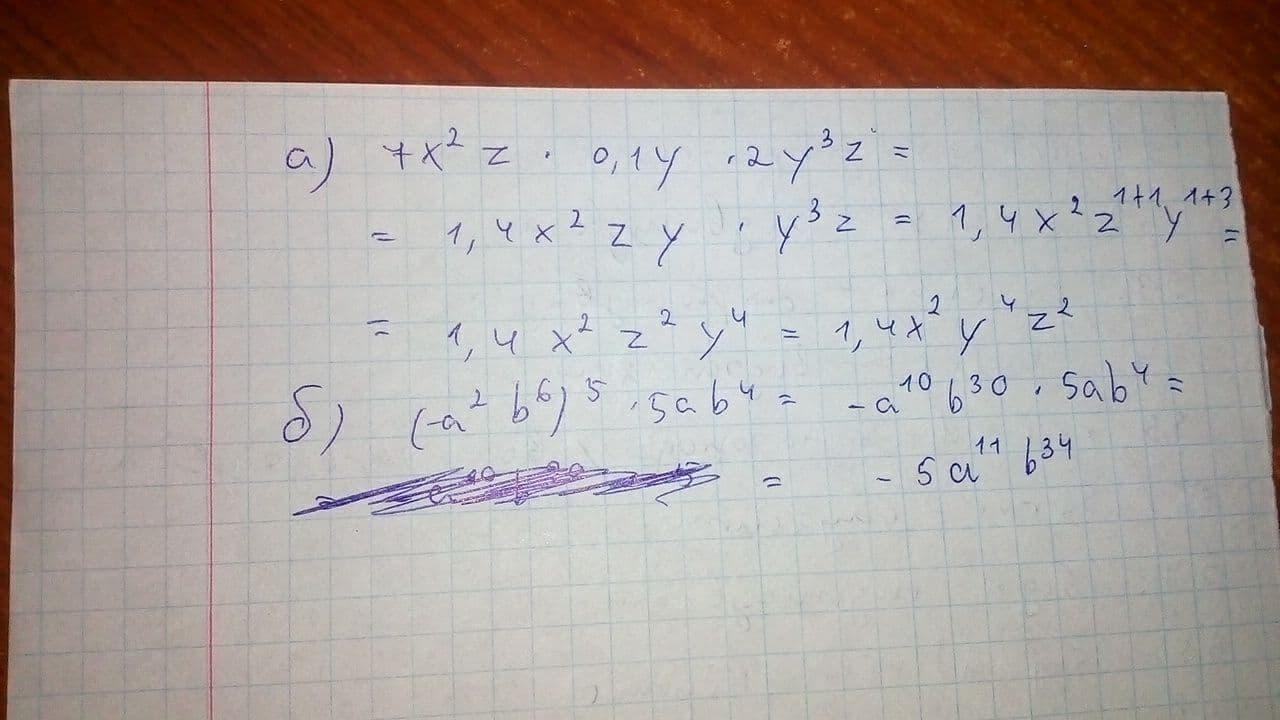 а) 7x² z · 0,1y · 2y³z =
= 1,4x² z y · y³z = 1,4x² z¹⁺¹y¹⁺³ =
= 1,4 x² z² y⁴ = 1,4x² y⁴ z²
б) (-a² b⁶)⁵ · 5ab⁴ = -a¹⁰ b³⁰ · 5ab⁴ =
= - 5a¹¹ b³⁴